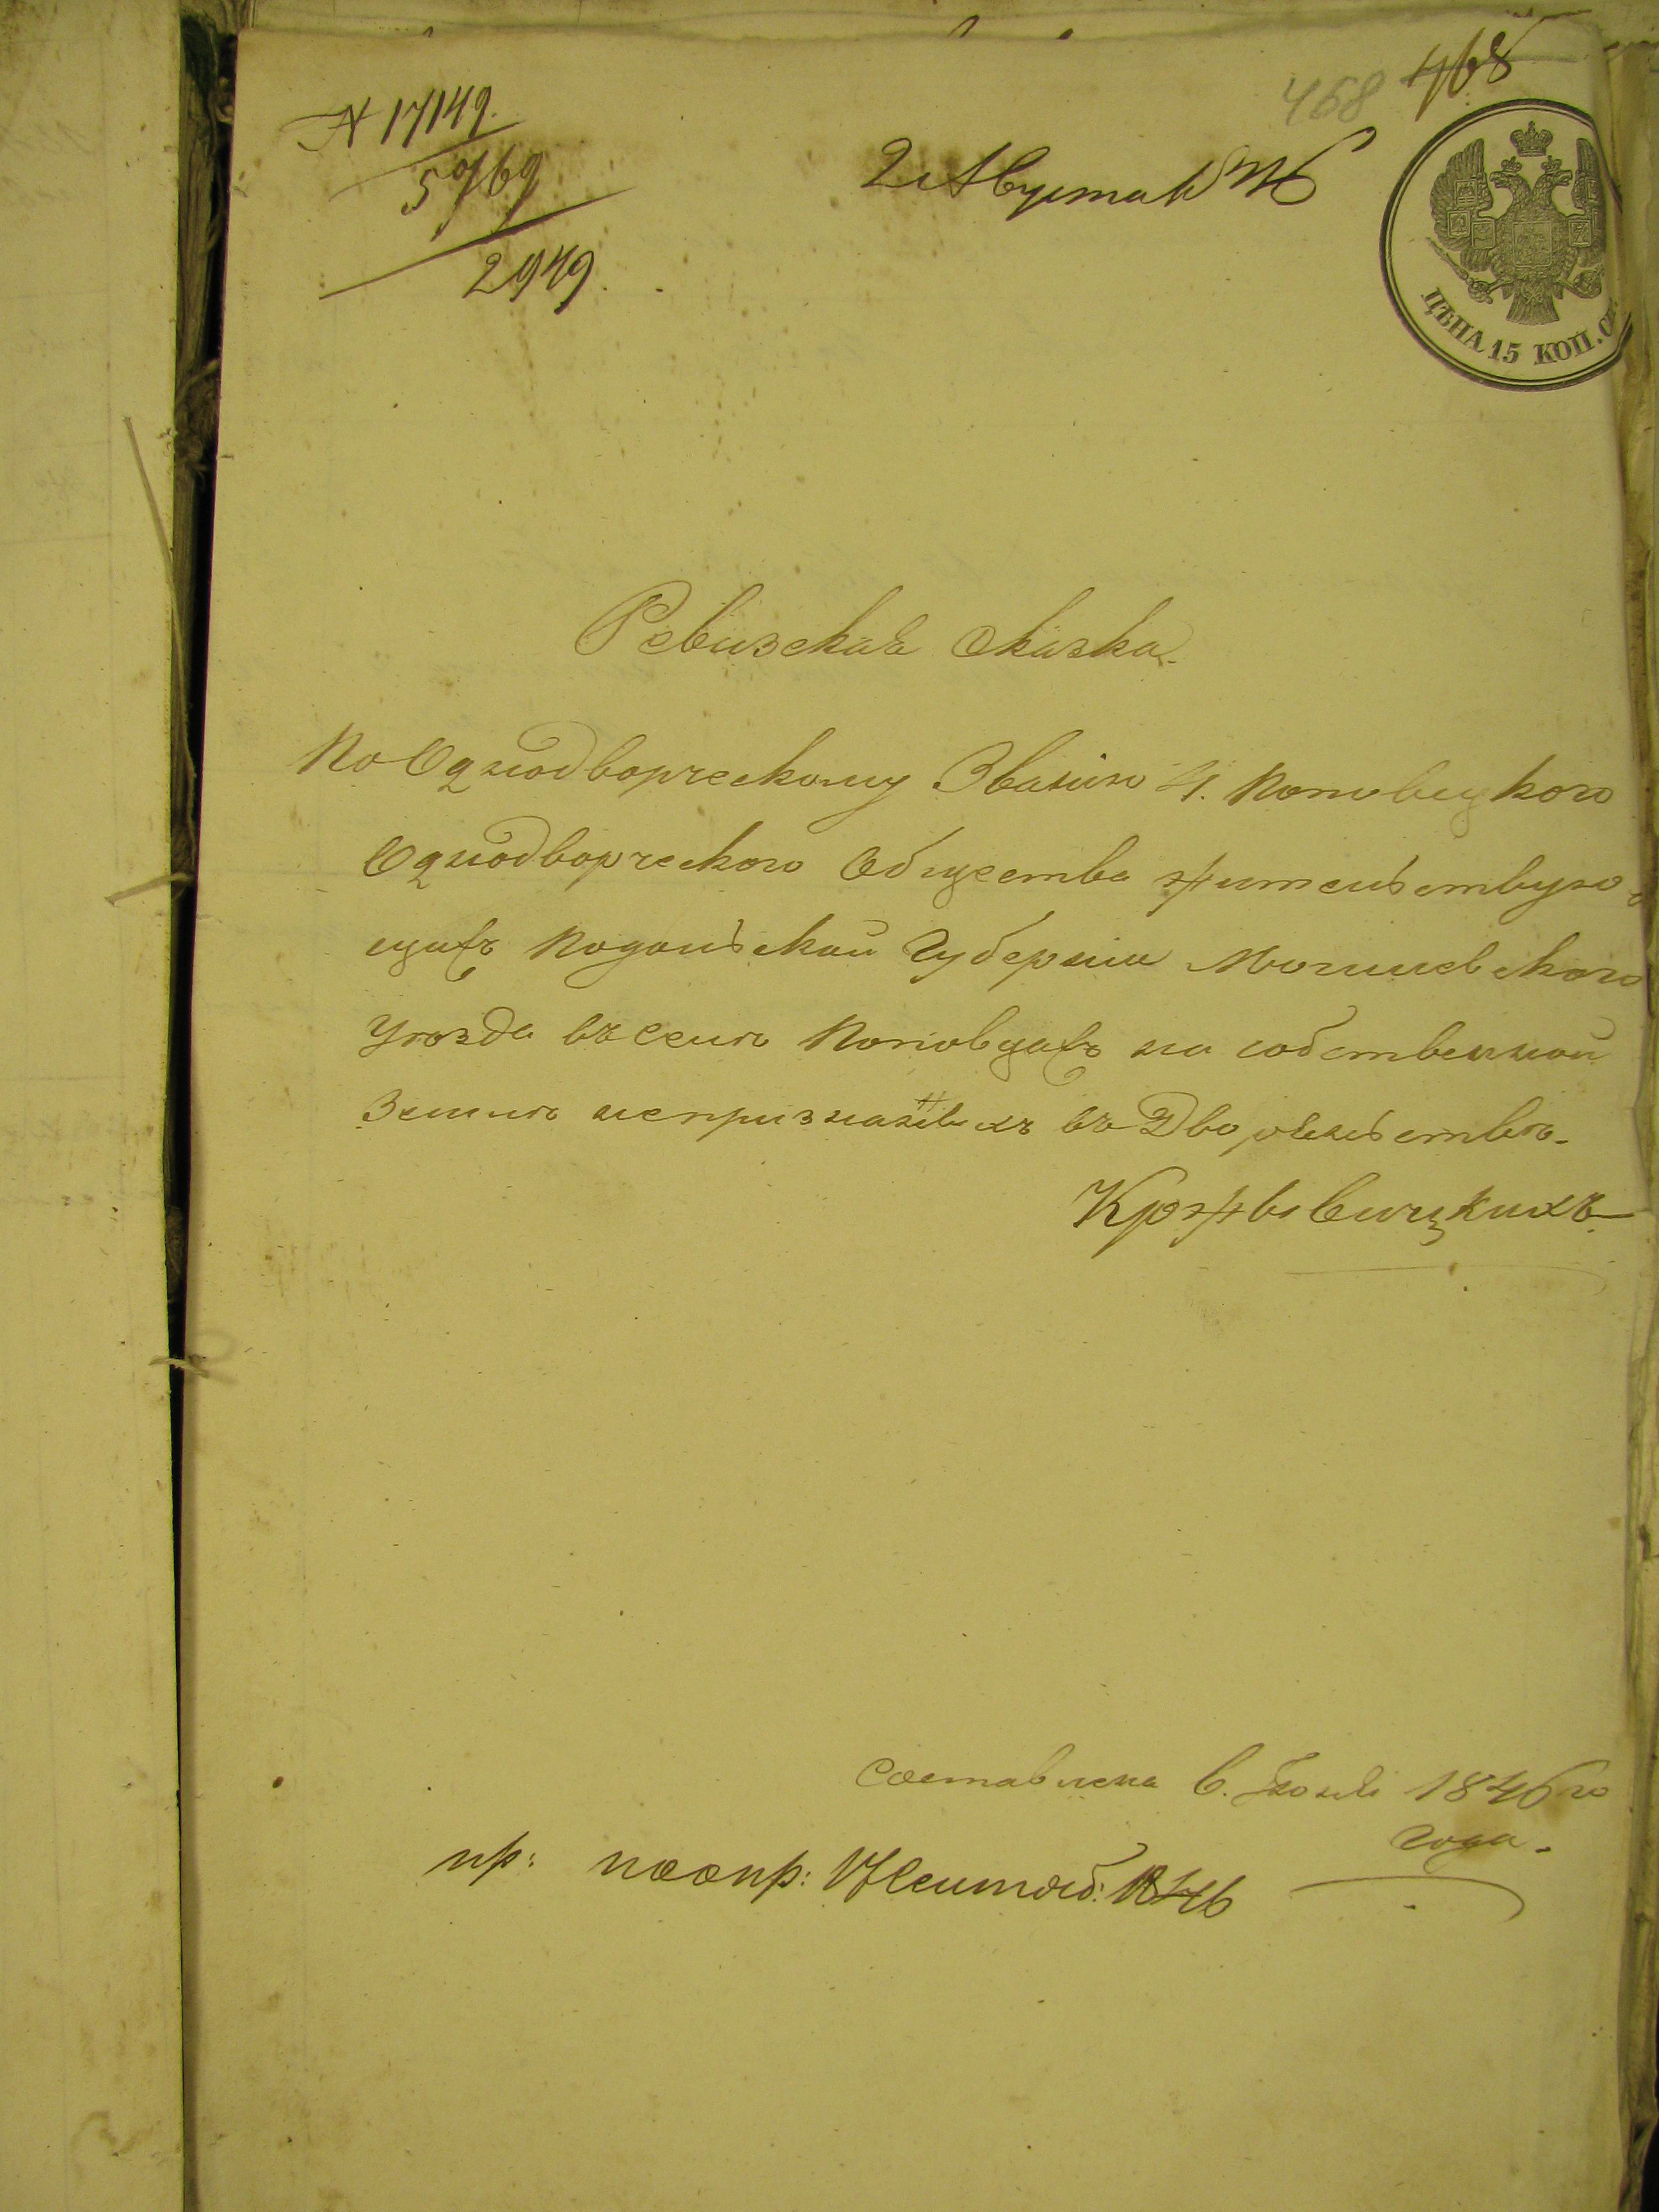 468 468
N 17149.
5769
2949.
2 Августа 1846
ЦѢНА 15 КОП. СЕ
Ревизская сказка.
По Однодворческому Званію 4. Поповецкого
Однодворческого Общества жительствую-
щихъ Подольской Губерніи Могилевского
Уѣзда въ селѣ Поповцахъ на собственной
Землѣ непризнаныхъ въ Дворянствѣ.
Кржывицкихъ
Составлена в. Іюлѣ 1846го
года.
пр: